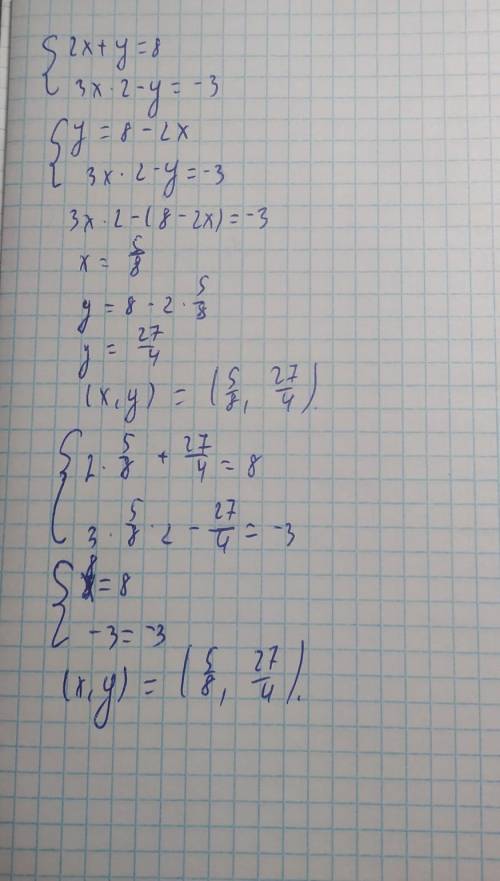 {2x+y=8
3x·2-y=-3
{y=8-2x
3x·2-y=-3
3x·2-(8-2x)=-3
x=5/8
y=8-2·5/8
y=27/4
(x,y)=(5/8, 27/4).
{2·5/8+27/4=8
3·5/8·2-27/4=-3
{8=8
-3=-3
(x,y)=(5/8, 27/4).